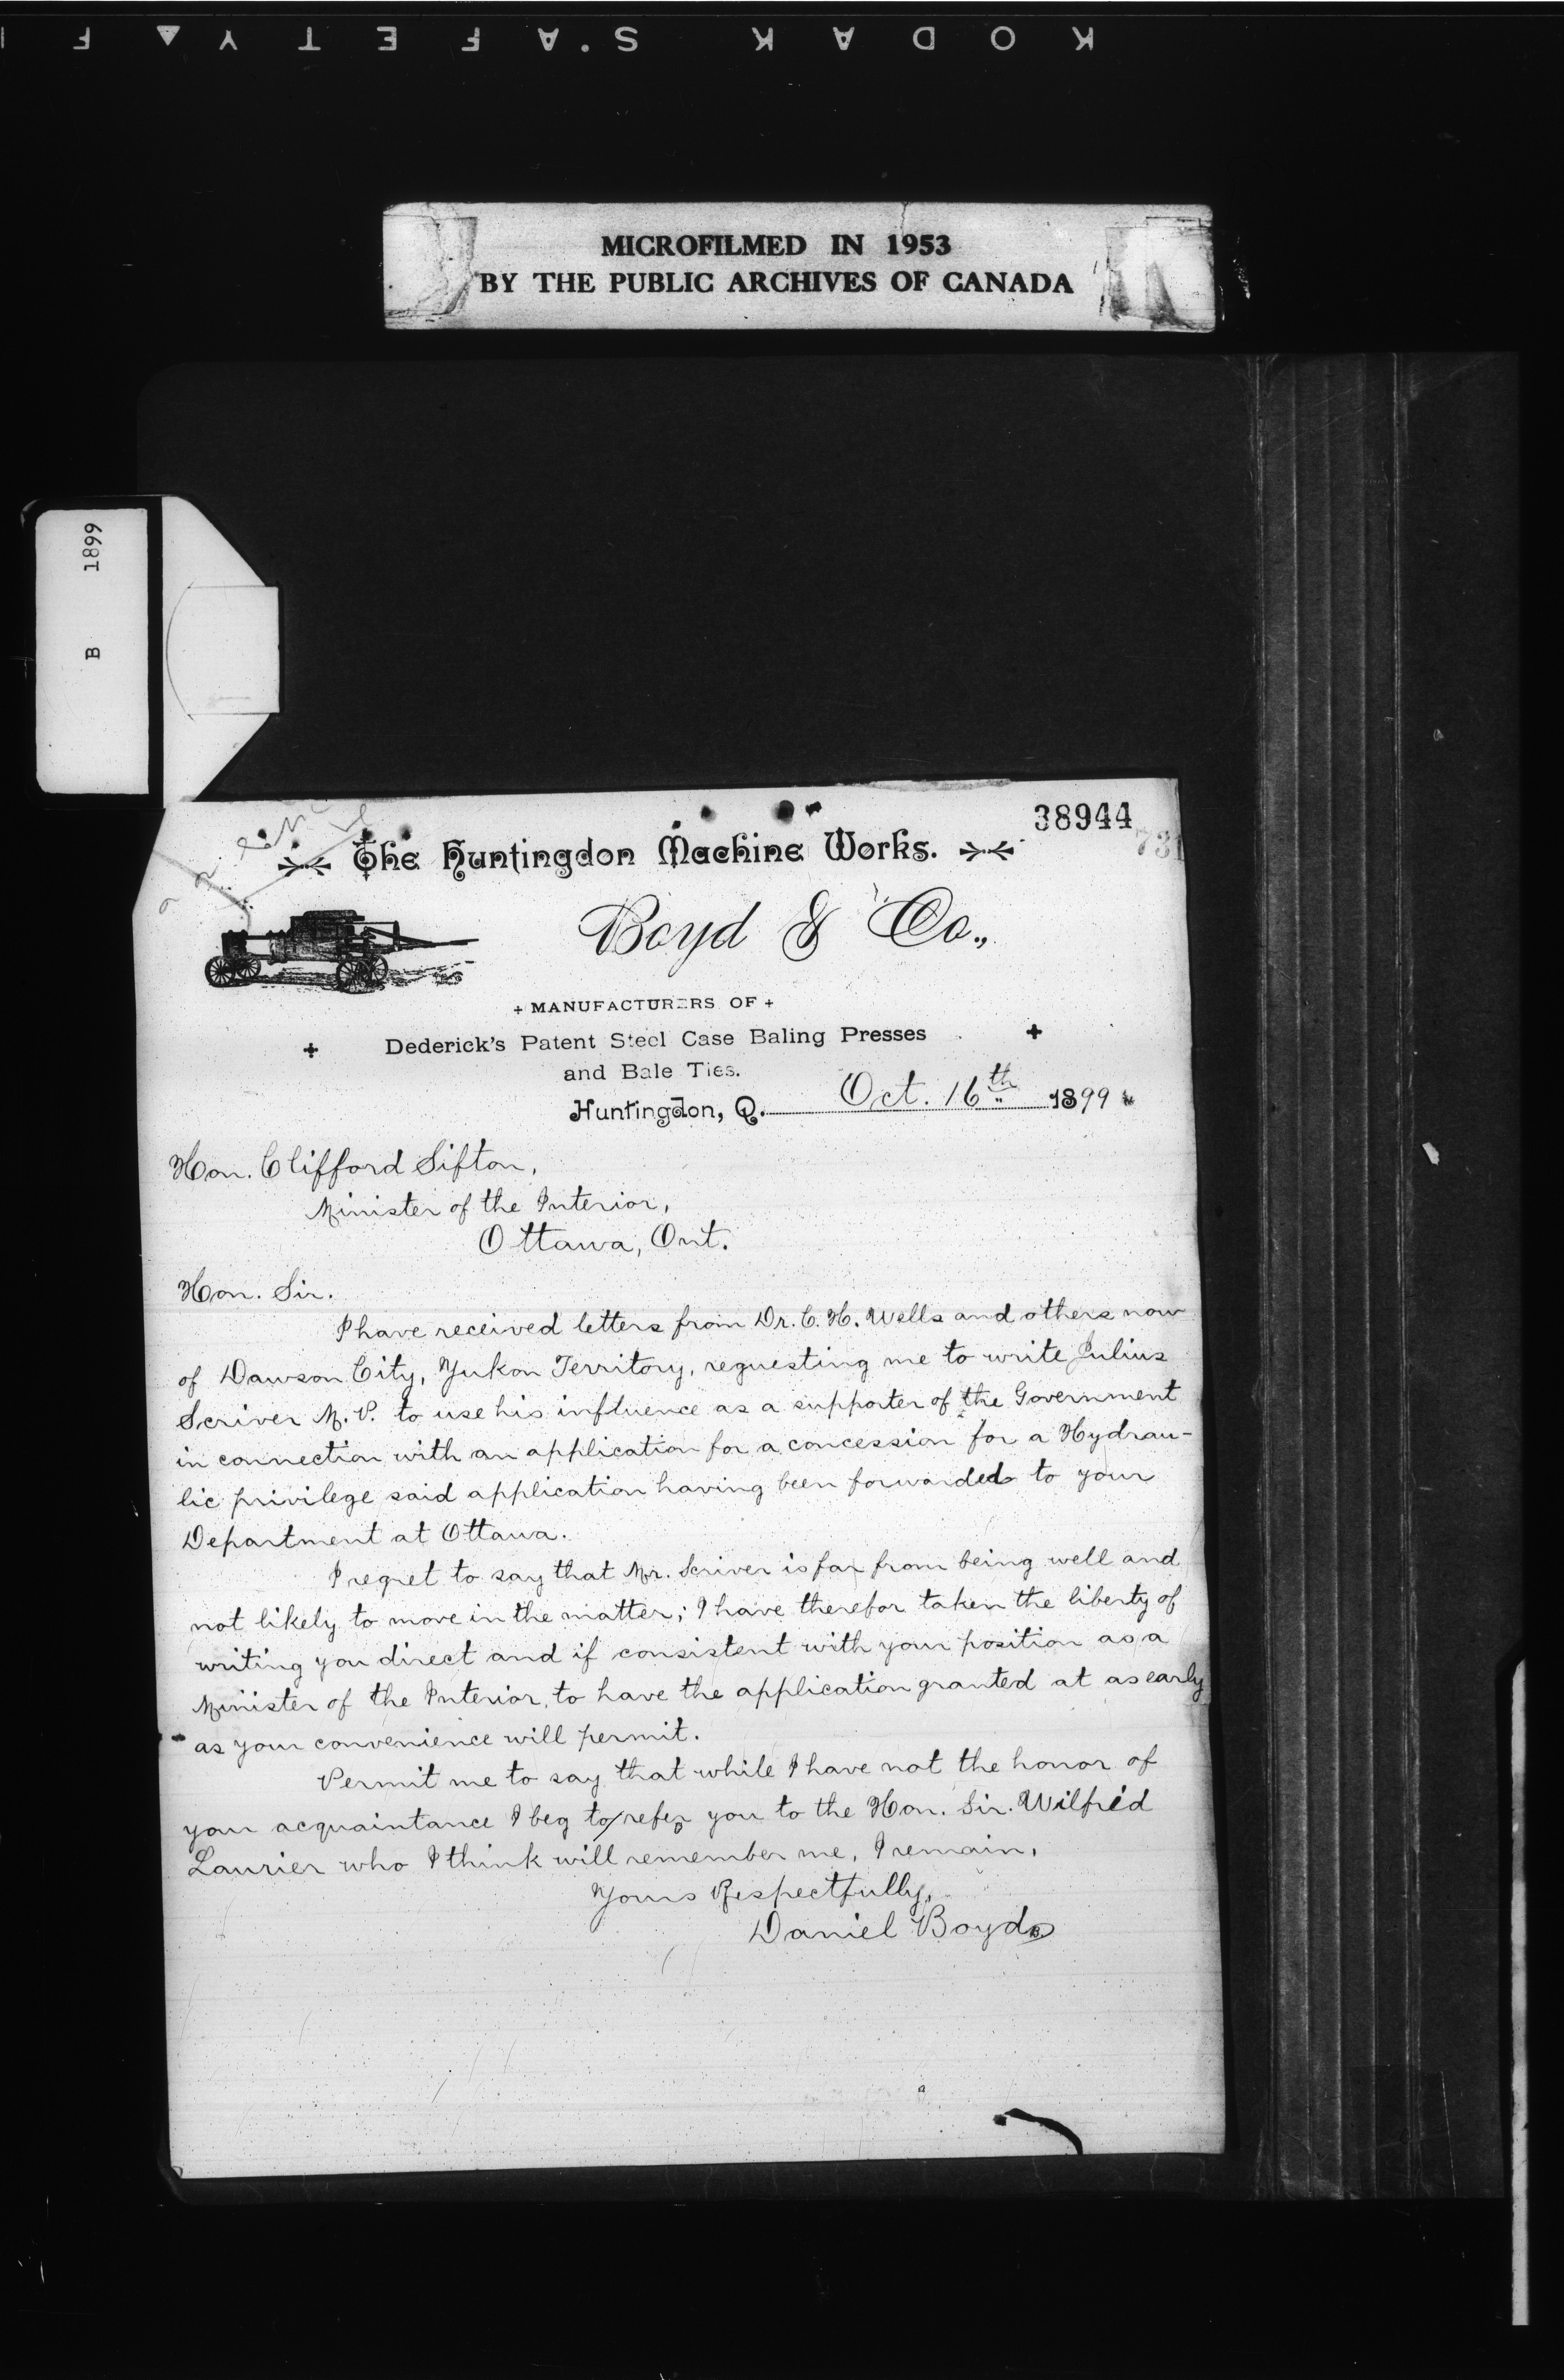 KODAK S'AFETY F
MICROFILMED IN 1953
BY THE PUBLIC ARCHIVES OF CANADA
B 1899
38944
731
The Huntingdon Machine Works.
Boyd & Co.,
+ MANUFACTURERS OF +
Dederick's Patent Steel Case Baling Presses
and Bale Ties.
Huntingdon, Q. Oct. 16th 1899
Hon. Clifford Sifton,
Minister of the Interior,
Ottawa, Ont.
Hon. Sir.
I have received letters from Dr. C. H. Wells and others now
of Dawson City, Yukon Territory, requesting me to write Julius
Scriver M. P. to use his influence as a supporter of the Government
in connection with an application for a concession for a Hydrau-
lic privilege said application having been forwarded to your
Department at Ottawa.
I regret to say that Mr. Scriver is far from being well and
not likely to move in the matter; I have therefor taken the liberty of
writing you direct and if consistent with your position as a
Minister of the Interior, to have the application granted at as early
as your convenience will permit.
Permit me to say that while I have not the honor of
your acquaintance I beg to/refer you to the Hon. Sir. Wilfrid
Laurier who I think will remember me, I remain,
Yours Respectfully,
Daniel Boyd